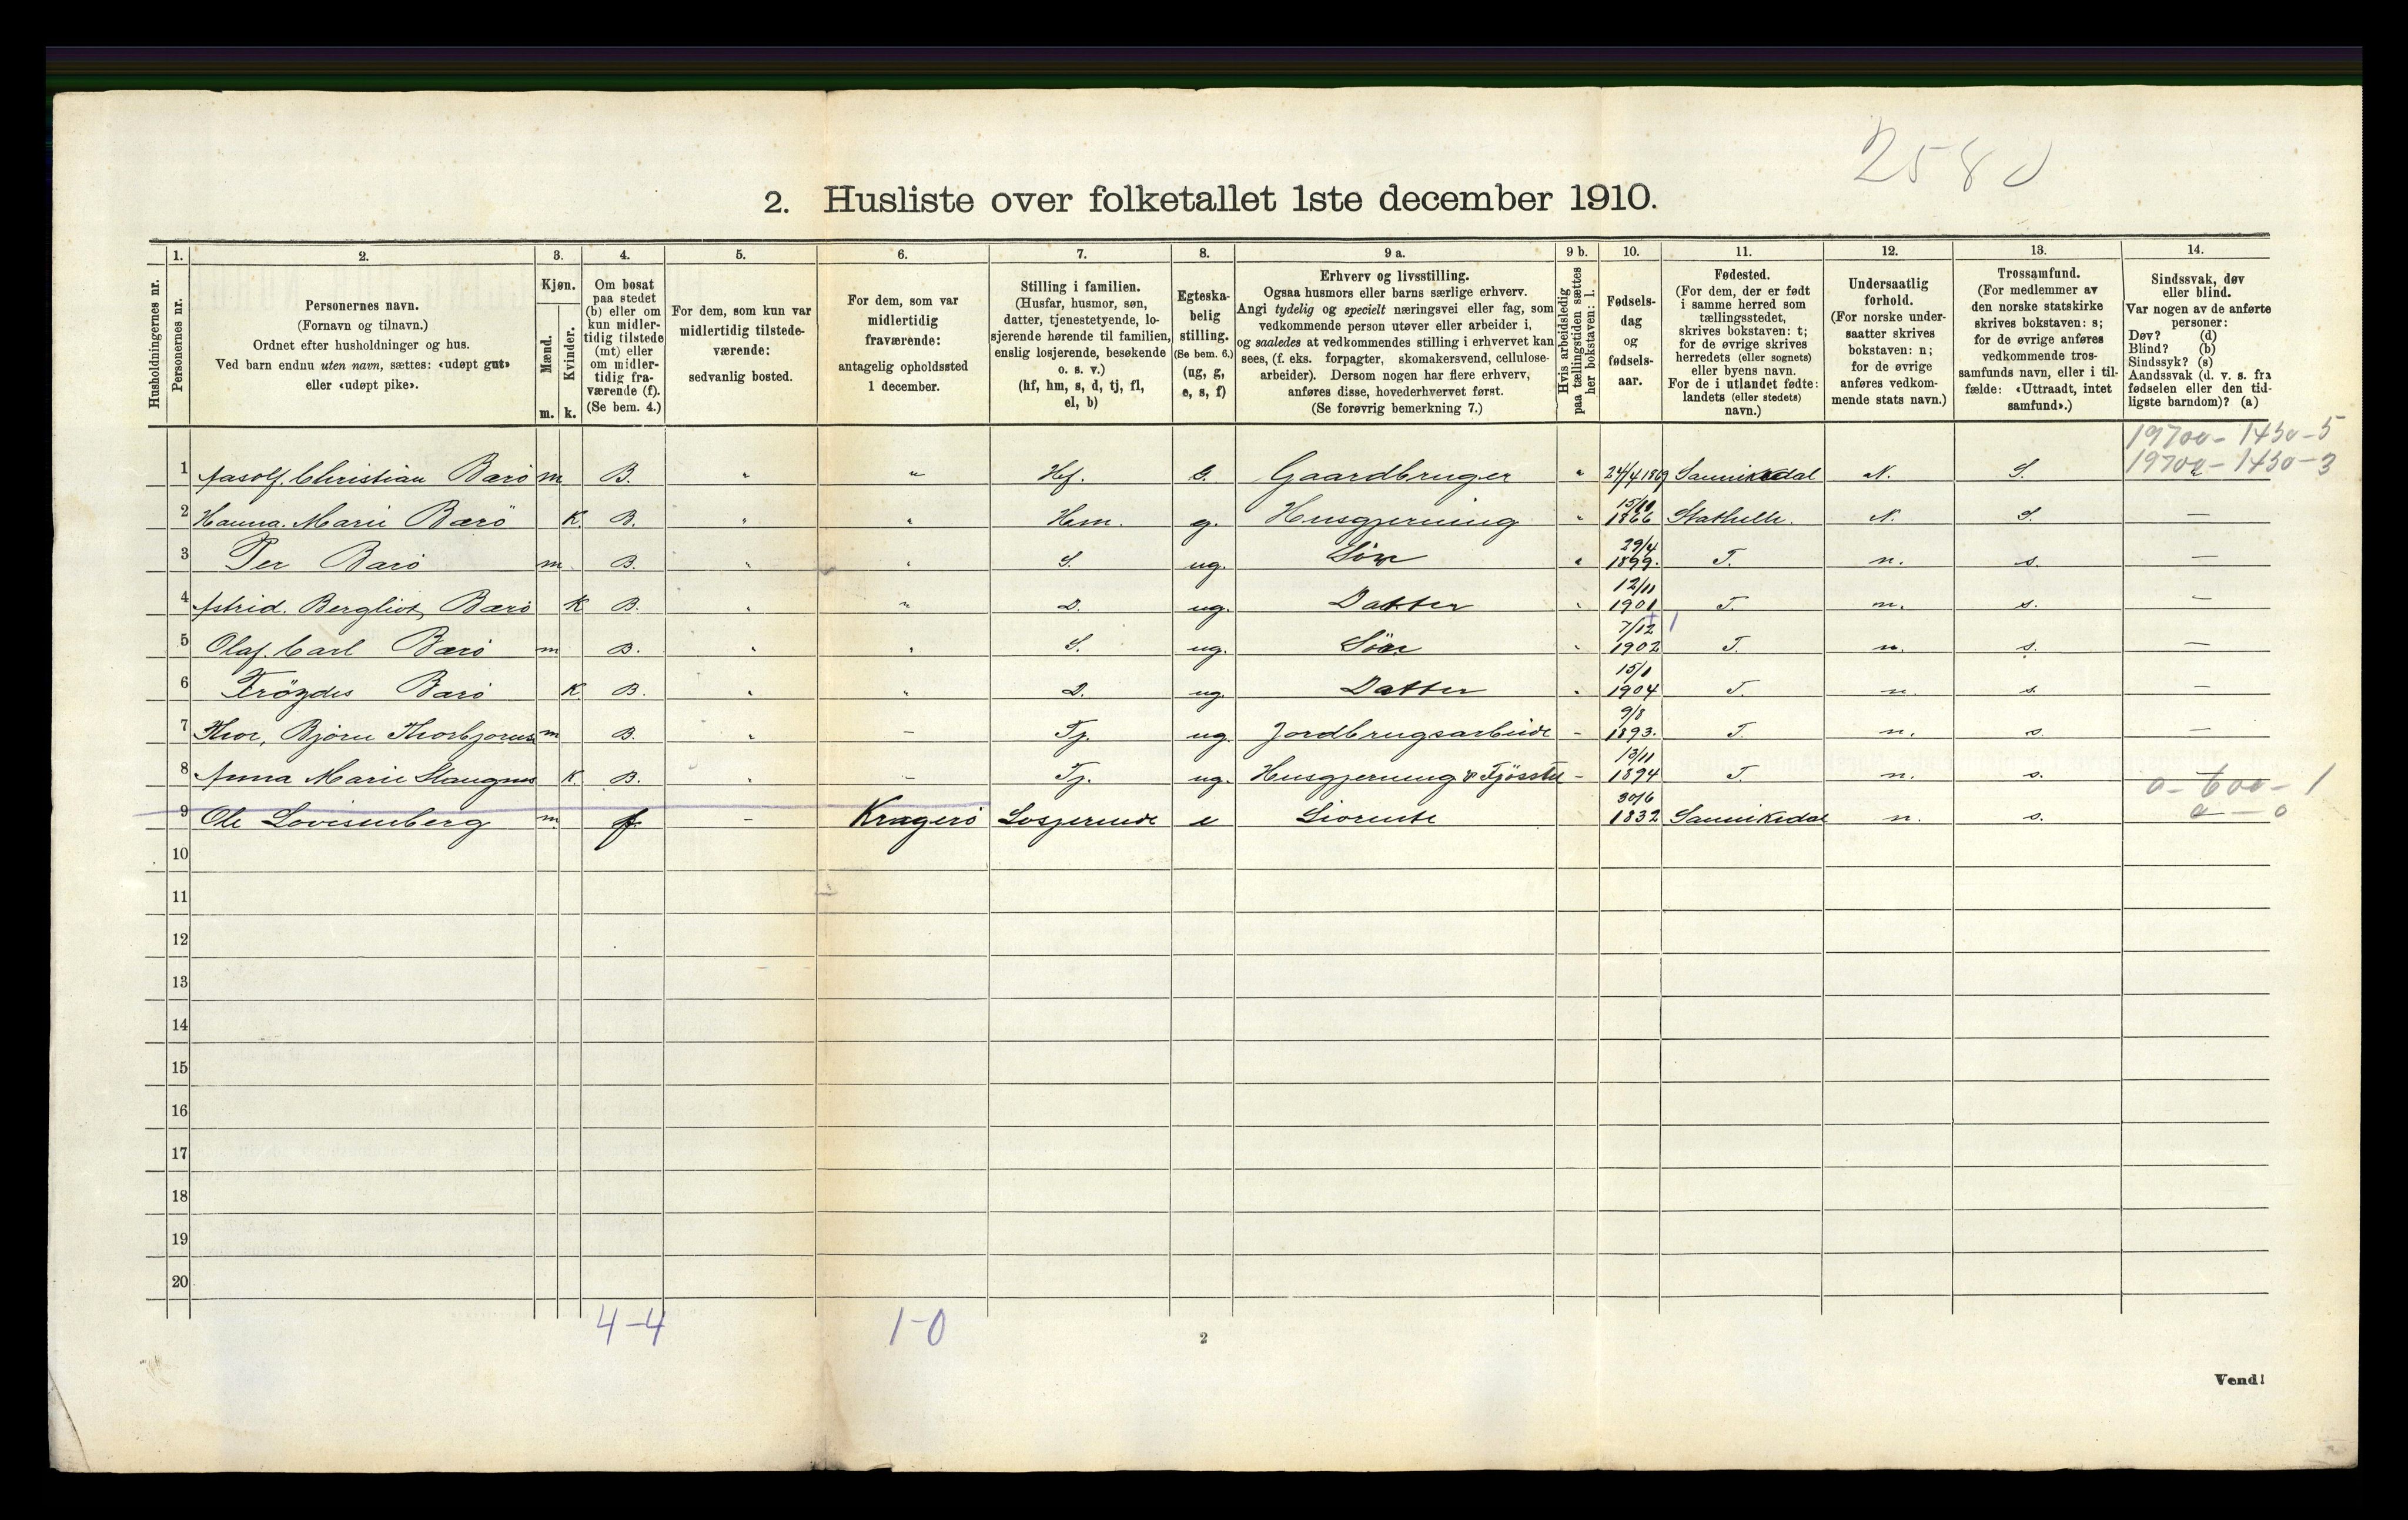 2580
2. Husliste over folketallet 1ste december 1910.
1. 2. 3. 4. 5. 6. 7. 8. 9 a. 9 b. 10. 11. 12. 13. 14.
Husholdningernes nr.
Personernes nr.
Personernes navn.
(Fornavn og tilnavn.)
Ordnet efter husholdninger og hus.
Ved barn endnu uten navn, sættes: «udøpt gut»
eller «udøpt pike».
Kjøn.
Mænd.
Kvinder.
m. k.
Om bosat
paa stedet
(b) eller om
kun midler-
tidig tilstede
(mt) eller
om midler-
tidig fra-
værende (f).
(Se bem. 4.)
For dem, som kun var
midlertidig tilstede-
værende:
sedvanlig bosted.
For dem, som var
midlertidig
fraværende:
antagelig opholdssted
1 december.
Stilling i familien.
(Husfar, husmor, søn,
datter, tjenestetyende, lo-
sjerende hørende til familien,
enslig losjerende, besøkende
o. s. v.)
(hf, hm, s, d, tj, fl,
el, b)
Egteska-
belig
stilling.
(Se bem. 6.)
(ug, g,
e, s, f)
Erhverv og livsstilling.
Ogsaa husmors eller barns særlige erhverv.
Angi tydelig og specielt næringsvei eller fag, som
vedkommende person utøver eller arbeider i,
og saaledes at vedkommendes stilling i erhvervet kan
sees, (f. eks. forpagter, skomakersvend, cellulose-
arbeider). Dersom nogen har flere erhverv,
anføres disse, hovederhvervet først.
(Se forøvrig bemerkning 7.)
Hvis arbeidsledig
paa tællingstiden sættes
her bokstaven: l.
Fødsels-
dag
og
fødsels-
aar.
Fødested.
(For dem, der er født
i samme herred som
tællingsstedet,
skrives bokstaven: t;
for de øvrige skrives
herredets (eller sognets)
eller byens navn.
For de i utlandet fødte:
landets (eller stedets)
navn.)
Undersaatlig
forhold.
(For norske under-
saatter skrives
bokstaven: n;
for de øvrige
anføres vedkom-
mende stats navn.)
Trossamfund.
(For medlemmer av
den norske statskirke
skrives bokstaven: s;
for de øvrige anføres
vedkommende tros-
samfunds navn, eller i til-
fælde: «Uttraadt, intet
samfund».)
Sindssvak, døv
eller blind.
Var nogen av de anførte
personer:
Døv? (d)
Blind? (b)
Sindssyk? (s)
Aandssvak (d. v. s. fra
fødselen eller den tid-
ligste barndom)? (a)
19700 - 1430 - 5
19700 - 1430 - 3
1 Aasolf. Christian Barö m B. " " Hf. G. Gaardbruger " 24/4 1869 Sannikedal N. S.
2 Hanna. Marie Barö K. B. " " Hm. g. Husgjerning " 15/10 1866 Stathelle. N. S. —
3 Per Barö m B. " " S. ug. Sön " 29/4 1899. T. n. s. —
4 Astrid. Bergliot Barö K B. " " D. ug. Datter " 12/11 1901 T. n. s. —
5 Olaf. Carl Barö m B. " " S. ug. Sön " 7/12 1902 T. n. s. —
6 Fröydis Barö K B. " " D. ug. Datter " 15/1 1904 T. n. s. —
7 Thor, Bjørn Thorbjørns m B. " — Tj. ug. Jordbrugsarbeide — 9/8 1893. T. n. s. —
8 Anna Marie K B. " — Tj. ug. Husgjerning & Fjösstel — 13/11 1894 T. n. s. —
0 - 600 - 1
0 — 0
9 Ole Lovisenberg m. f. — Kragerö Losjerende e 30/6 1832 Sannikedal n. s.
10
11
12
13
14
15
16
17
18
19
20
4-4 1-0
2
Vend!